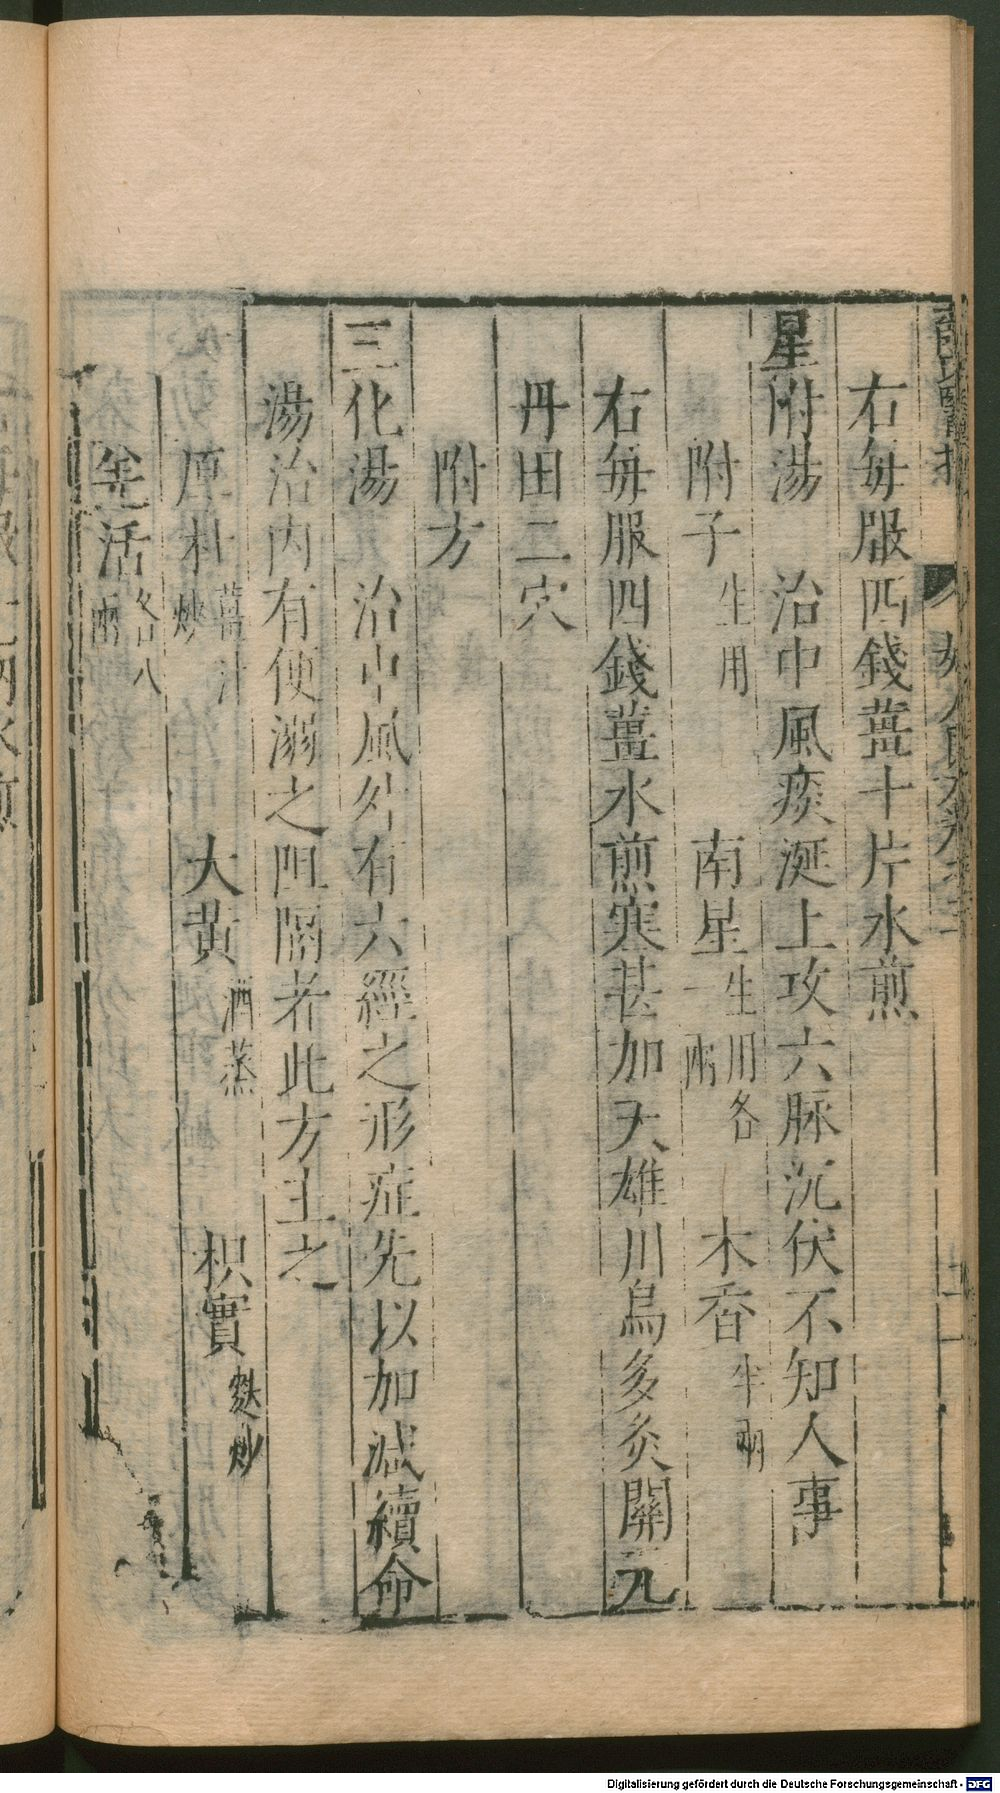 右每服四錢薑十片水煎
星附湯　治中風痰涎上攻六脉沉伏不知人事
附子生用　南星生用各一兩　木香半兩
右每服四錢薑水煎寒甚加天雄川烏多灸關元
丹田二穴
附方
三化湯　治中風外有六經之形症先以加減續命
湯治内有便溺之阻隔者此方主之
厚朴薑汁炒　大黃酒蒸　枳實麩炒
羌活各八兩
Digitalisierung gefördert durch die Deutsche Forschungsgemeinschaft - DFG